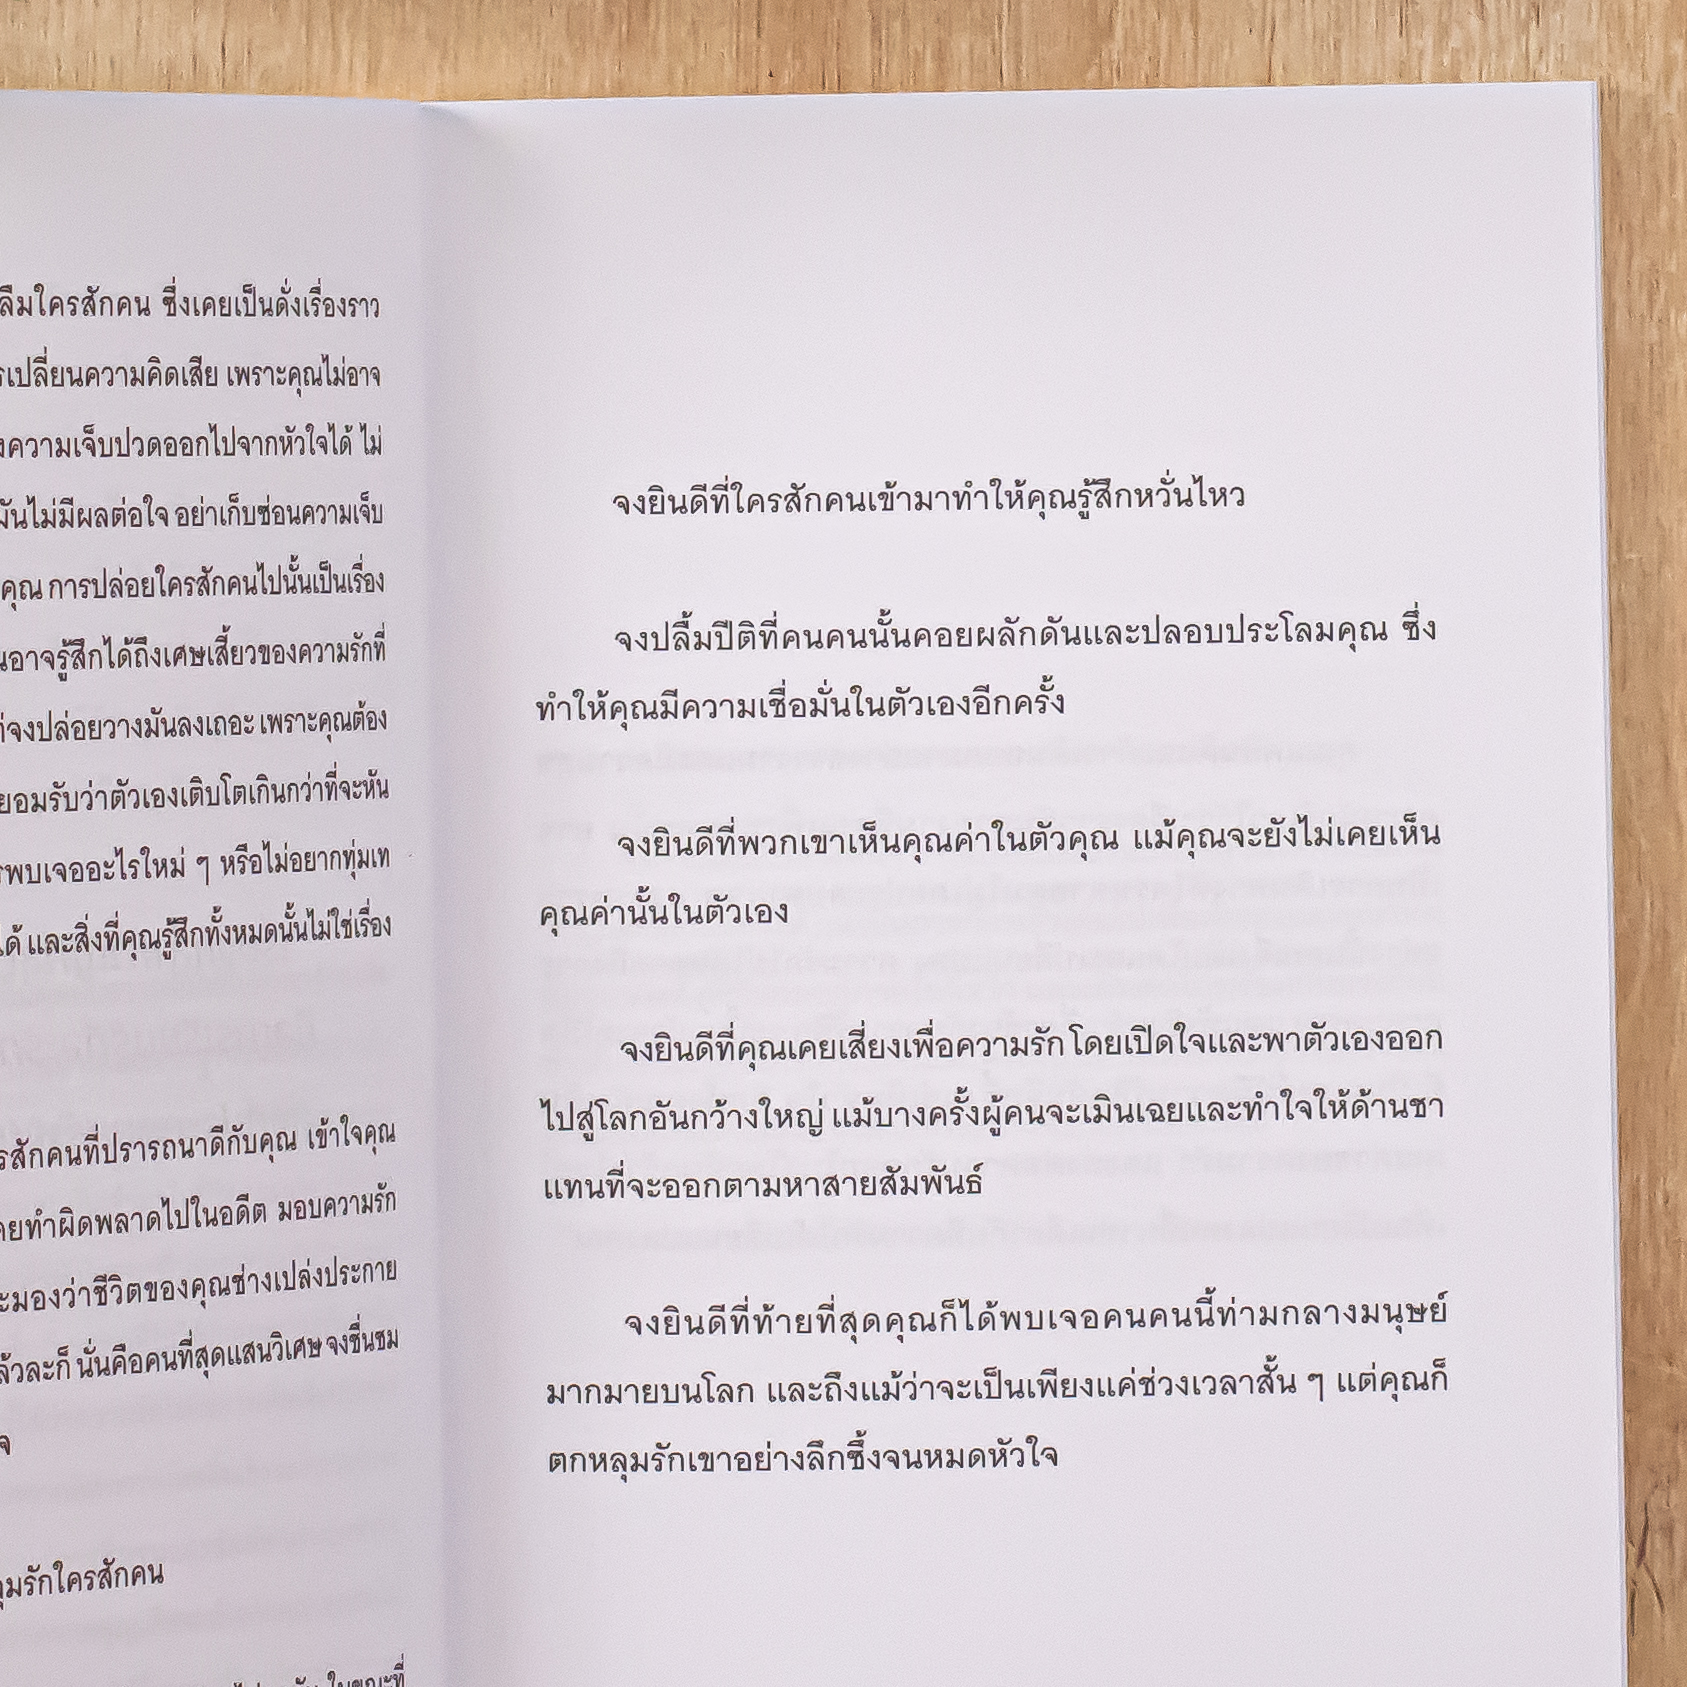 ลืมใครสักคน ซึ่งเคยเป็นดั่งเรื่องราว
เปลี่ยนความคิดเสีย เพราะคุณไม่อาจ
ความเจ็บปวดออกไปจากหัวใจได้ ไม่
มันไม่มีผลต่อใจ อย่าเก็บซ่อนความเจ็บ
คุณ การปล่อยใครสักคนไปนั้นเป็นเรื่อง
อาจรู้สึกได้ถึงเศษเสี้ยวของความรักที่
จงปล่อยวางมันลงเถอะ เพราะคุณต้อง
ยอมรับว่าตัวเองเติบโตเกินกว่าที่จะหัน
พบเจออะไรใหม่ ๆ หรือไม่อยากทุ่มเท
ได้ และสิ่งที่คุณรู้สึกทั้งหมดนั้นไม่ใช่เรื่อง
สักคนที่ปรารถนาดีกับคุณ เข้าใจคุณ
ทำผิดพลาดไปในอดีต มอบความรัก
มองว่าชีวิตของคุณช่างเปล่งประกาย
ล้วละก็ นั่นคือคนที่สุดแสนวิเศษ จงชื่นชม
จ
รักใครสักคน
ในขณะที่
จงยินดีที่ใครสักคนเข้ามาทำให้คุณรู้สึกหวั่นไหว
จงปลื้มปีติที่คนคนนั้นคอยผลักดันและปลอบประโลมคุณ ซึ่ง
ทำให้คุณมีความเชื่อมั่นในตัวเองอีกครั้ง
จงยินดีที่พวกเขาเห็นคุณค่าในตัวคุณ แม้คุณจะยังไม่เคยเห็น
คุณค่านั้นในตัวเอง
จงยินดีที่คุณเคยเสี่ยงเพื่อความรัก โดยเปิดใจและพาตัวเองออก
ไปสู่โลกอันกว้างใหญ่ แม้บางครั้งผู้คนจะเมินเฉยและทำใจให้ด้านชา
แทนที่จะออกตามหาสายสัมพันธ์
จงยินดีที่ท้ายที่สุดคุณก็ได้พบเจอคนคนนี้ท่ามกลางมนุษย์
มากมายบนโลก และถึงแม้ว่าจะเป็นเพียงแค่ช่วงเวลาสั้น ๆ แต่คุณก็
ตกหลุมรักเขาอย่างลึกซึ้งจนหมดหัวใจ